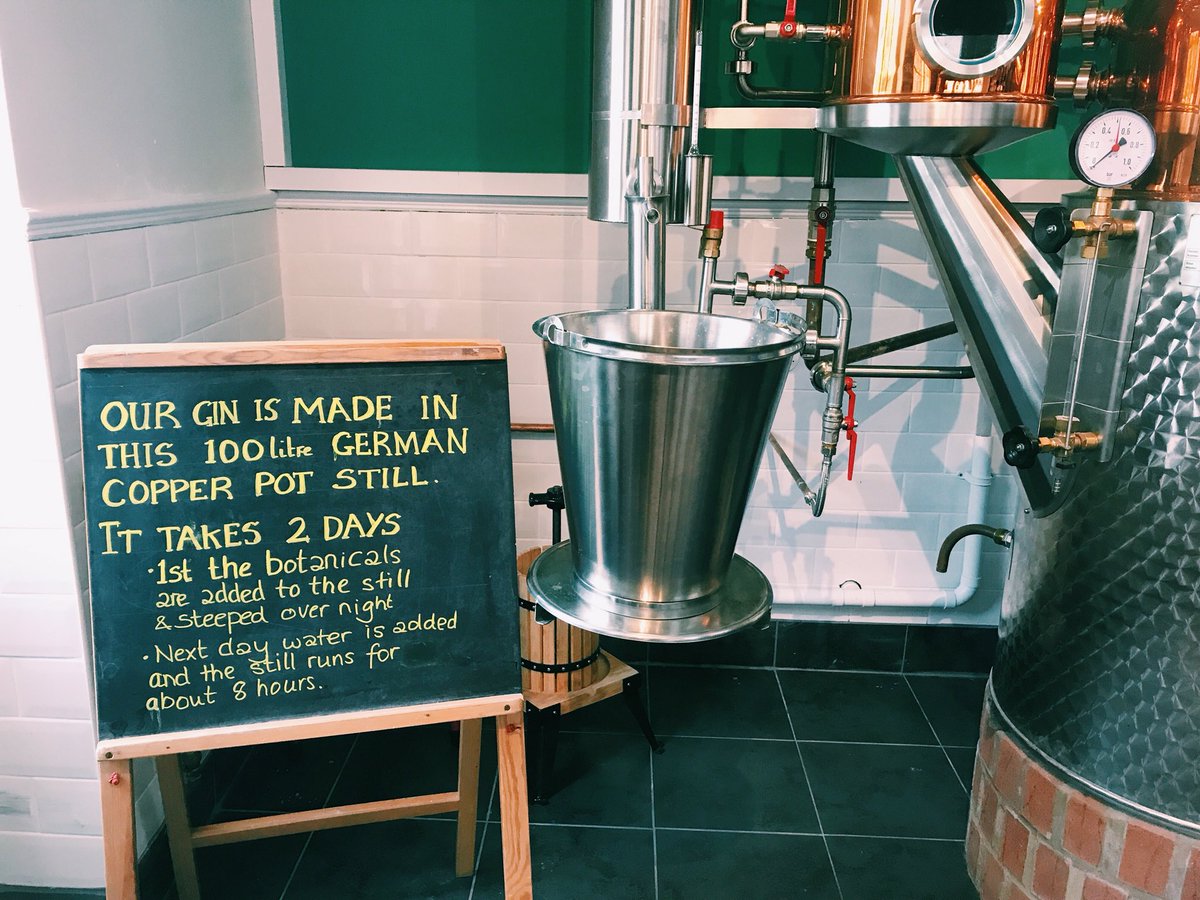 OUR GIN IS MADE IN
THIS 100 litre GERMAN
COPPER POT STILL.
IT TAKES 2 DAYS
· 1st the botanicals
are added to the still
& steeped over night
· Next day water is added
and the still runs for
about 8 hours.
0 0.2 0.4 0.6 0.8 1.0
bar